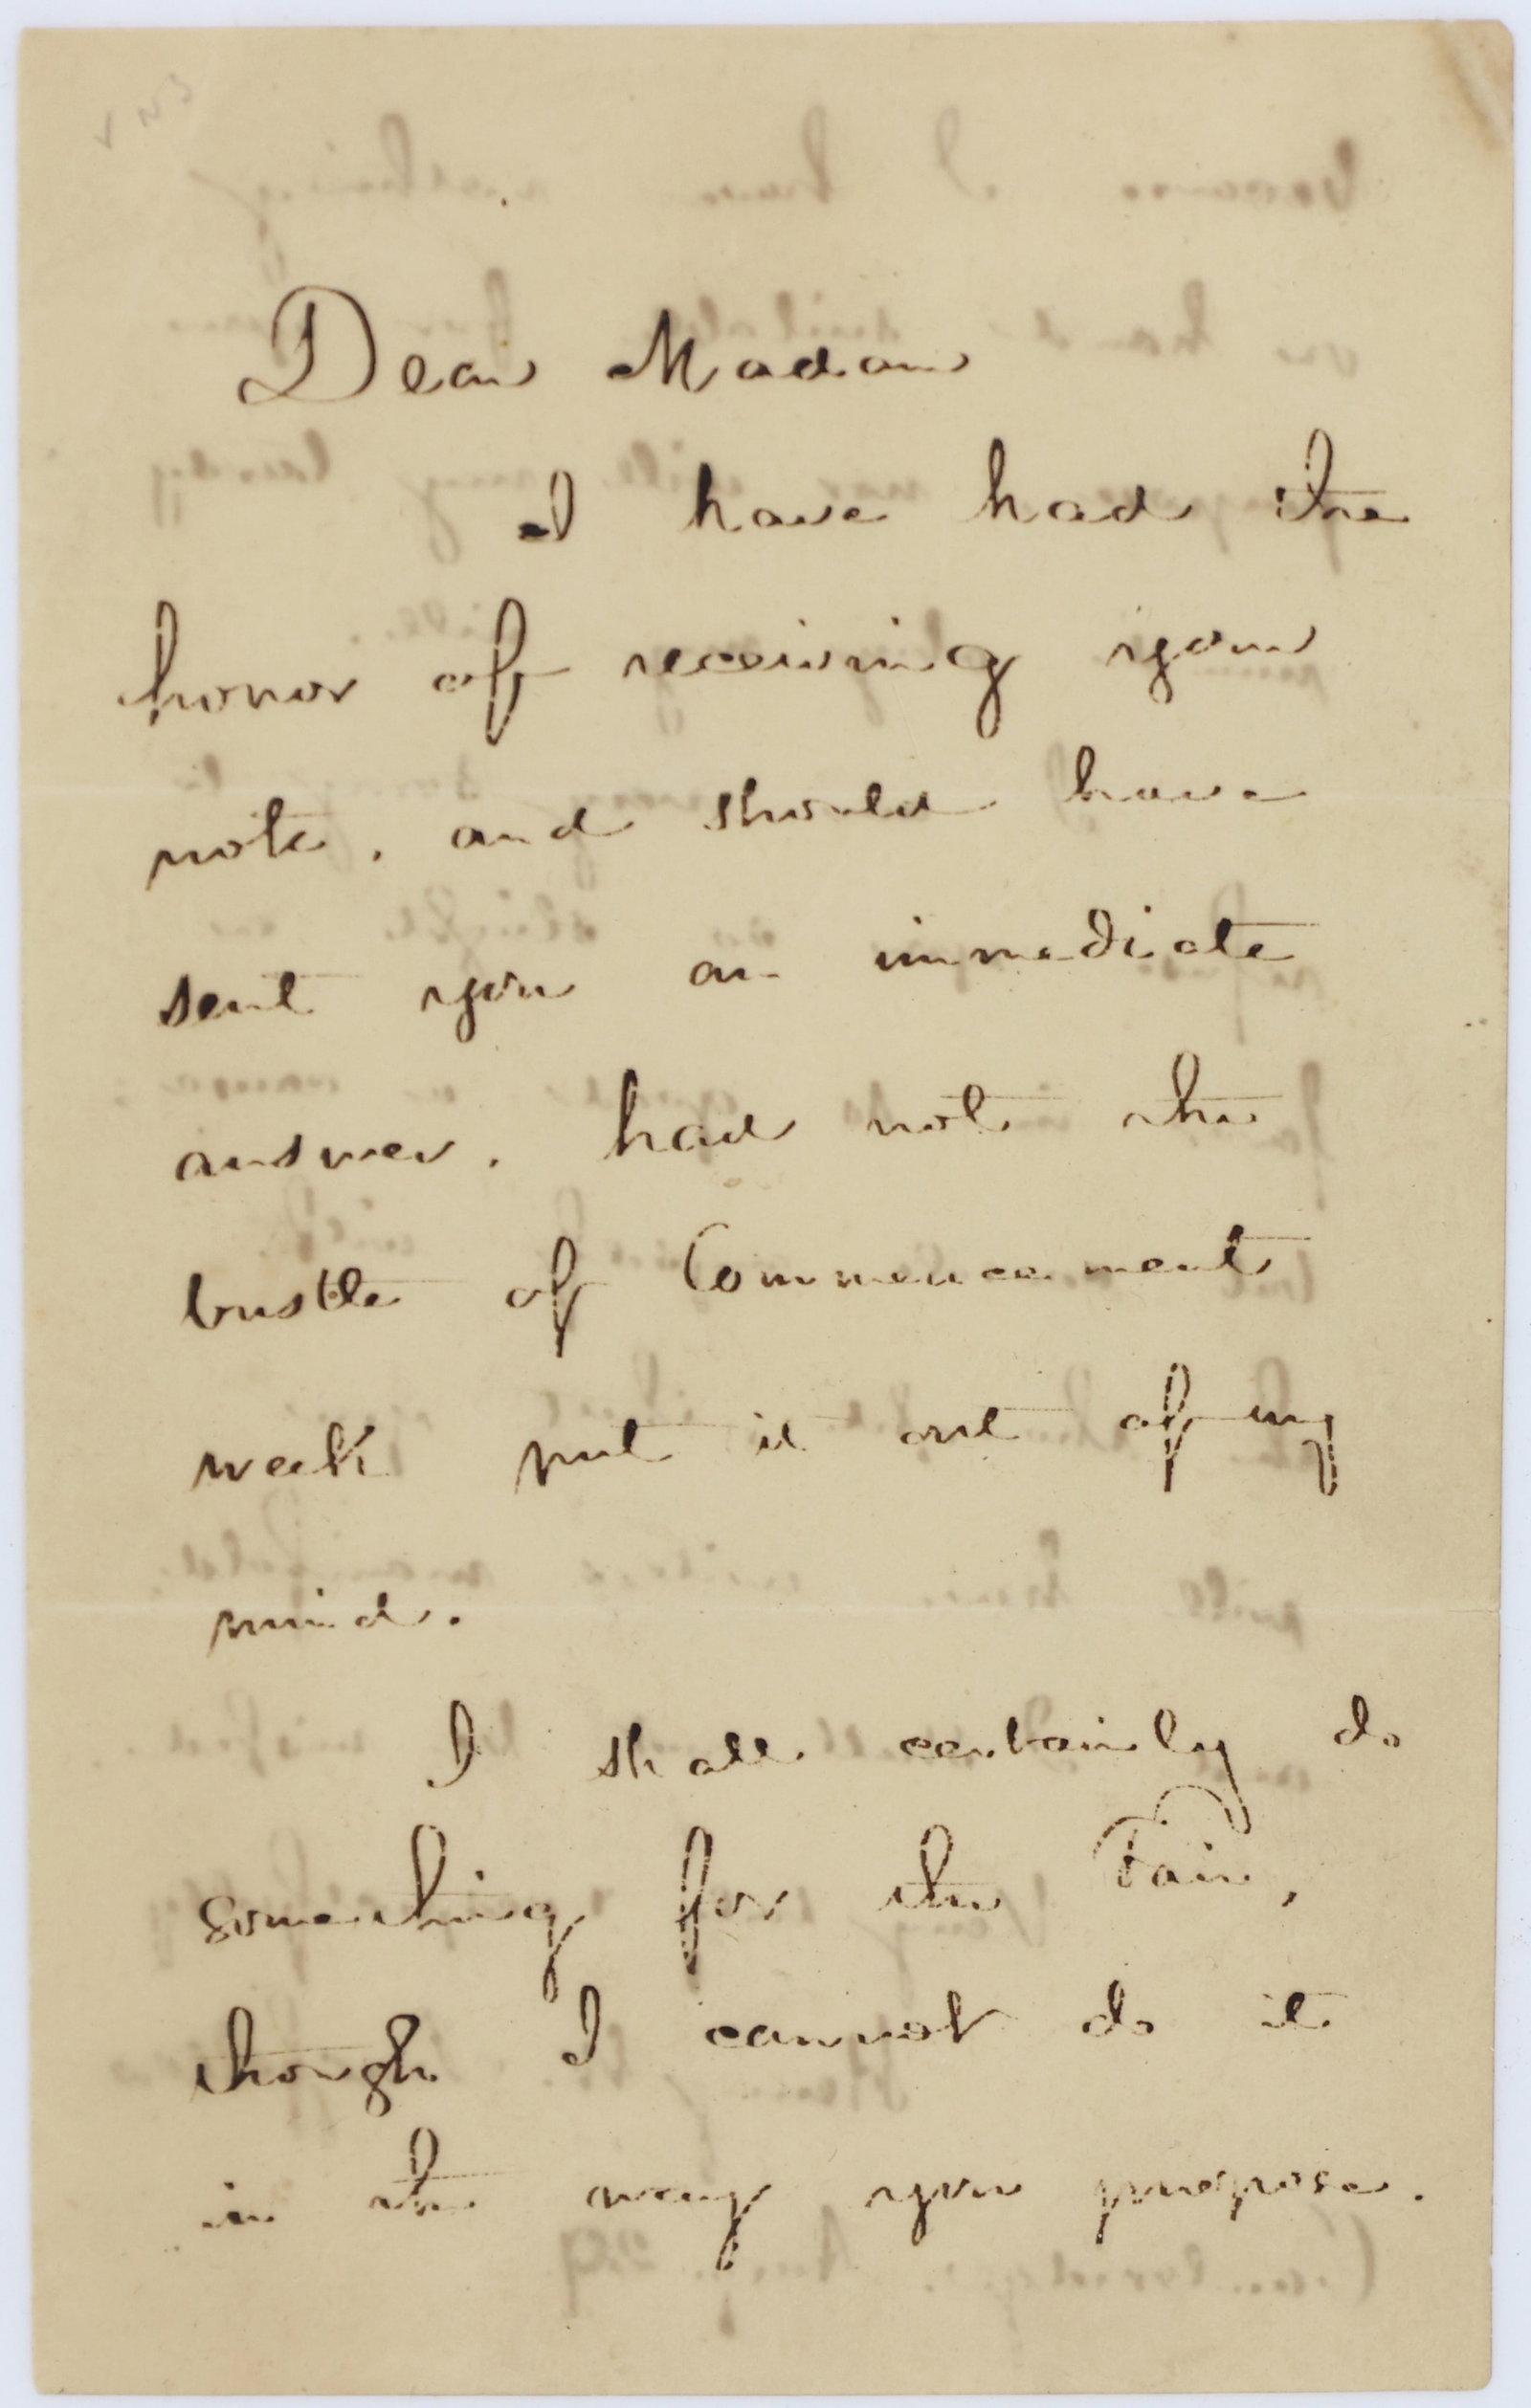 Dear Madam
I have had the
honor of receiving your
note, and should have
sent you an immediate
answer, had not the
bustle of Commencement
week put it out of my
mind.
I shall certainly do
something for the Fair,
though I cannot do it
in the way you propose.